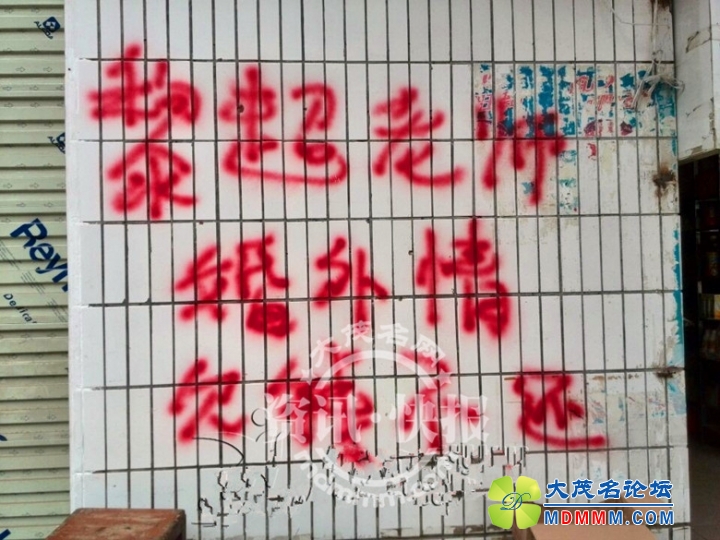 黎超老师
婚外情
欠钱不还
大茂名网
资讯·快报
大茂名论坛
MDMMM.COM
Reyn
Delicat